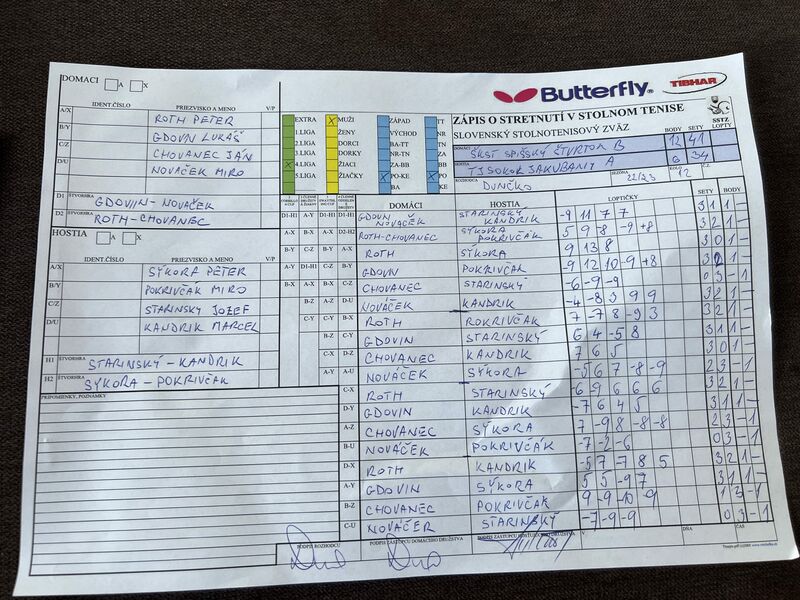 DOMACI A X
IDENT.ČÍSLO PRIEZVISKO A MENO V/P
A/X ROTH PETER
B/Y GDOVIN LUKÁŠ
C/Z CHOVANEC JÁN
D/U NOVÁČEK MIRO
D1 ŠTVORHRA GDOVIN-NOVÁČEK
D2 ROTH-CHOVANEC
HOSTIA A X
IDENT.ČÍSLO PRIEZVISKO A MENO V/P
A/X SÝKORA PETER
B/Y POKRIVČAK MIRO
C/Z STARINSKY JOZEF
D/U KANDRIK MARCEL
H1 ŠTVORHRA STARINSKÝ - KANDRIK
H2 ŠTVORHRA SÝKORA - POKRIVČAK
PRIPOMIENKY, POZNÁMKY
Butterfly TIBHAR
ZÁPIS O STRETNUTÍ V STOLNOM TENISE
SLOVENSKÝ STOLNOTENISOVÝ ZVÄZ
SSTZ
BODY SETY LOPTY
EXTRA X MUŽI ZÁPAD TT
1.LIGA ŽENY VÝCHOD NR
2.LIGA DORCI BA-TT TN
3.LIGA DORKY NR-TN ZA
X 4.LIGA ŽIACI ZA-BB BB
5.LIGA ŽIAČKY X PO-KE X PO
BA KE
DOMÁCI ŠKST SPIŠSKÝ ŠTVRTOK B 12 41
HOSTIA TJ SOKOL JAKUBANY A 6 34
ROZHODCA DUNČKO SEZÓNA 22/23 KOLO 12
DOMÁCI HOSTIA LOPTIČKY SETY BODY
D1-H1 A-Y D1-H1 D1-H1 GDOVIN NOVÁČEK STARINSKÝ KANDRIK -9 11 7 7 3 1 1 -
A-X B-X A-X D2-H2 ROTH-CHOVANEC SÝKORA POKRIVČAK 5 9 8 -9 +8 3 2 1 -
B-Y C-Z B-Y A-X ROTH SÝKORA 9 13 8 3 0 1 -
A-Y D1-H1 C-Z B-Y GDOVIN POKRIVČAK -9 12 10 -9 +8 3 2 1 -
B-X A-X B-X C-Z CHOVANEC STARINSKÝ -6 -9 -9 0 3 - 1
B-Z A-Z D-U NOVÁČEK KANDRIK -4 -8 3 9 9 3 2 1 -
C-Y C-Y B-X ROTH POKRIVČAK 7 -7 8 -9 3 3 2 1 -
B-Z C-Y GDOVIN STARINSKÝ 6 4 -5 8 3 1 1 -
C-X D-Z CHOVANEC KANDRIK 7 6 5 3 0 1 -
A-Y A-U NOVÁČEK SÝKORA -5 6 7 -8 -9 2 3 - 1
C-X ROTH STARINSKÝ -6 9 6 6 6 3 2 1 -
D-Y GDOVIN KANDRIK -7 6 4 5 3 1 1 -
A-Z CHOVANEC SÝKORA 7 -9 8 -8 -8 2 3 - 1
B-U NOVÁČEK POKRIVČÁK -7 -2 -6 0 3 - 1
D-X ROTH KANDRIK -5 7 -7 8 5 3 2 1 -
A-Y GDOVIN SÝKORA 5 5 -9 7 3 1 1 -
B-Z CHOVANEC POKRIVČAK 9 -9 -10 -9 1 3 - 1
C-U NOVÁČEK STARINSKÝ -7 -9 -9 0 3 - 1
PODPIS ROZHODCU PODPIS ZÁSTUPCU DOMÁCEHO DRUŽSTVA PODPIS ZÁSTUPCU HOSŤUJÚCEHO DRUŽSTVA V DŇA ČAS